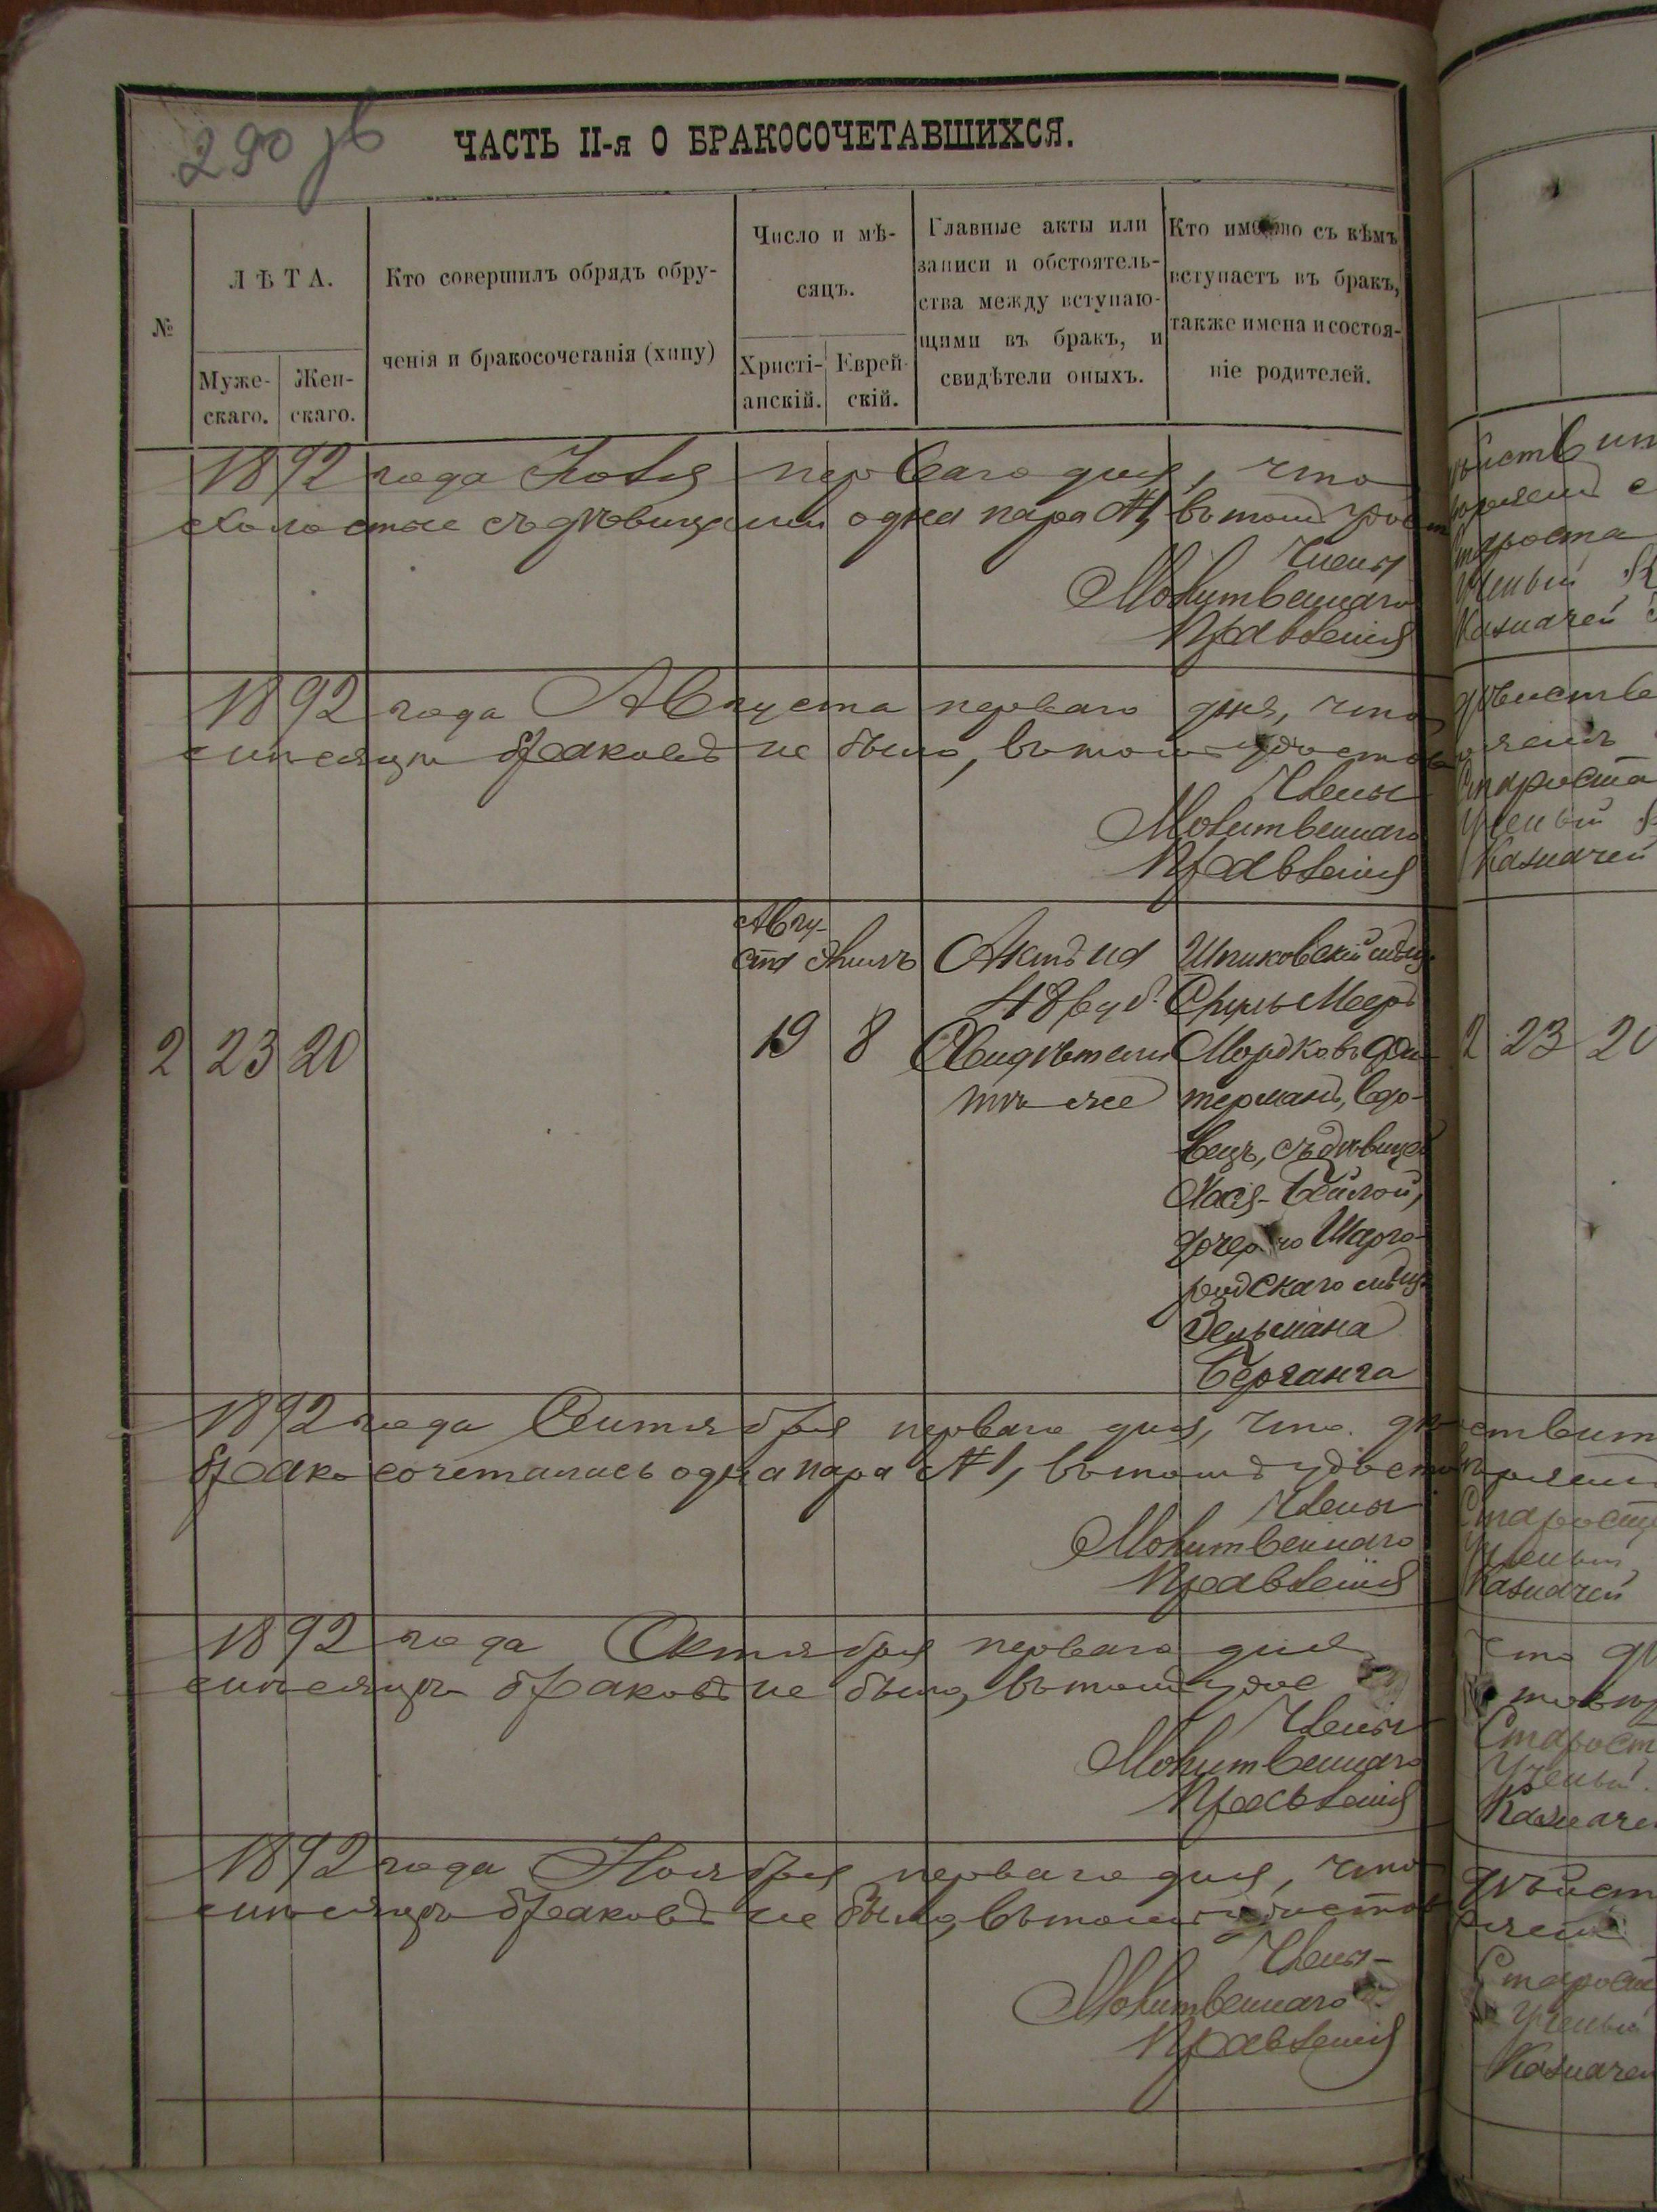 290 зв
ЧАСТЬ II-я О БРАКОСОЧЕТАВШИХСЯ.
№
ЛѢТА.
Муже-
скаго.
Жен-
скаго.
Кто совершилъ обрядъ обру-
ченія и бракосочетанія (хипу)
Число и мѣ-
сяцъ.
Христі-
анскій.
Еврей-
скій.
Главные акты или
записи и обстоятель-
ства между вступаю-
щими въ бракъ, и
свидѣтели оныхъ.
Кто именно съ кѣмъ
вступаетъ въ бракъ,
также имена и состоя-
ніе родителей.
1892 года перваго дня, что
холостые съ дѣвицами одна пара №1, въ томъ удост
Члены
Молитвеннаго
Правленія
1892 года Августа перваго дня, что
семъ мѣсяцѣ браковъ не было, въ томъ удостов
Члены
Молитвеннаго
Правленія
2 23 20
Авгу-
ста
19
8
Актъ на
48 руб.
Свидѣтели
тѣ-же
Шпиковскій мѣщ.
Сруль Мееръ
Мордковъ Фи-
терманъ, вдо-
вецъ, съ дѣвицей
Хася-Бейлой,
дочерью Шарго-
родскаго мѣщ.
Зельмана
Берганга
1892 года Сентября перваго дня, что дѣ
бракосочеталась одна пара №1, въ томъ удосто
Члены
Молитвеннаго
Правленія
1892 года Октября перваго дня
мѣсяцѣ браковъ не было, въ томъ удос
Члены
Молитвеннаго
Правленія
1892 года Ноября перваго дня, что
мѣсяцѣ браковъ не было, въ томъ удостов
Члены
Молитвеннаго
Правленія
Староста
Казначей
Староста
Казначей
2 23 20
Казначей